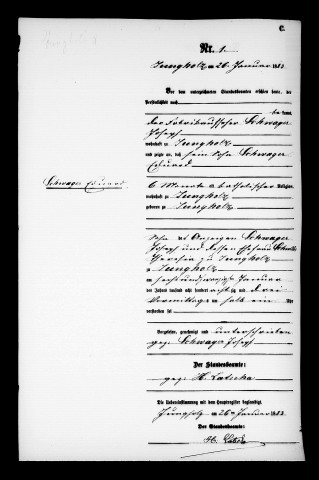 C.
Nr. 1.
Jungholz am 26. Januar 1883
Vor dem unterzeichneten Standesbeamten erschien heute, der
Persönlichkeit nach
be kannt,
der Fabrikaufseher Schwager
Joseph
wohnhaft zu Jungholz
und zeigte an, daß sein Sohn Schwager
Eduard
Schwager Eduard
6 Monate alt katholischer Religion,
wohnhaft zu Jungholz
geboren zu Jungholz
Sohn des Anzeigers Schwager
Joseph und dessen Ehefrau
Theresia zu Jungholz
zu Jungholz
am sechsundzwanzigsten Januar
des Jahres tausend acht hundert achtzig und drei
Vormittags um halb ein Uhr
verstorben sei
Vorgelesen, genehmigt und unterschrieben
gez. Schwager Joseph
Der Standesbeamte:
gez. H.
Die Uebereinstimmung mit dem Hauptregister beglaubigt.
Jungholz am 26. Januar 1883
Der Standesbeamte:
H.